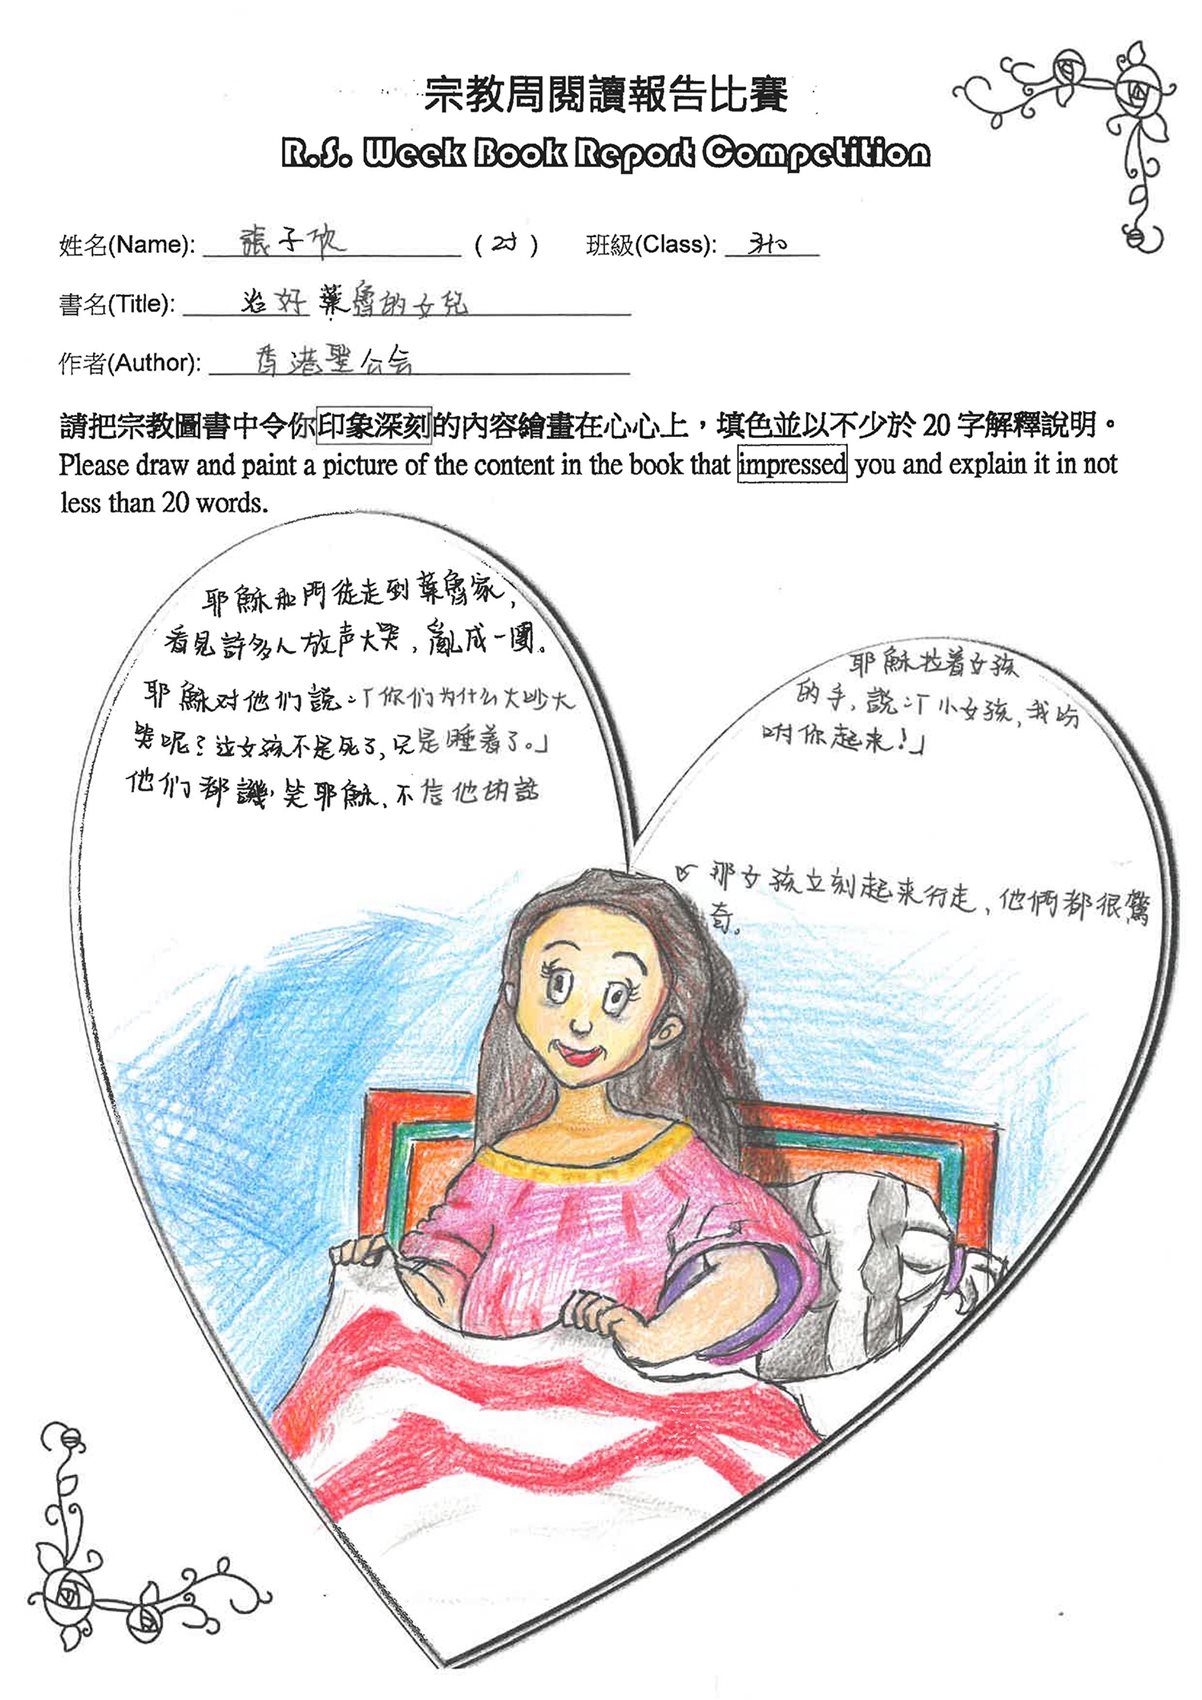 宗教周閱讀報告比賽
R.S. Week Book Report Competition
姓名(Name): 張子欣 ( ) 班級(Class):
書名(Title): 治好葉魯的女兒
作者(Author): 香港聖公会
請把宗教圖書中令你印象深刻的內容繪畫在心心上，填色並以不少於 20 字解釋說明。
Please draw and paint a picture of the content in the book that impressed you and explain it in not
less than 20 words.
耶穌和門徒走到葉魯家，
看見許多人放声大哭，亂成一團。
耶穌对他们說：「你们为什么大吵大
哭呢？这女孩不是死了，只是睡着了。」
他们都譏笑耶穌，不信他的話
耶穌拉着女孩
的手，說：「小女孩，我吩
咐你起来！」
那女孩立刻起来行走，他倆都很驚
奇。